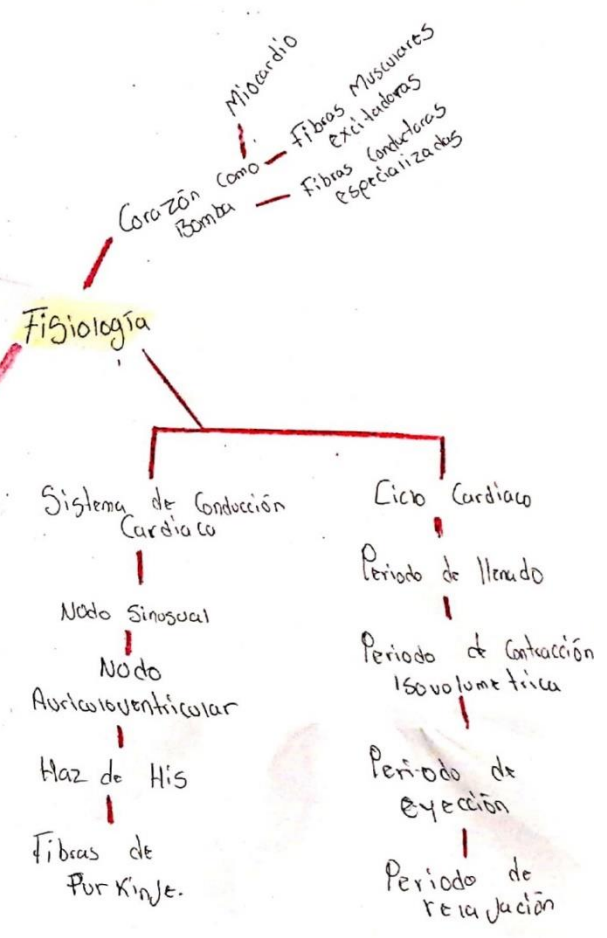 Miocardio
Fibras Musculares
excitadoras
Corazón como
Bomba
Fibras Conductoras
especializadas
Fisiología
Sistema de Conducción
Cardiaca
Nodo Sinusual
Nodo
Auriculoventricular
Haz de His
Fibras de
Purkinje.
Ciclo Cardiaco
Periodo de llenado
Periodo de Contracción
isovolumetrica
Periodo de
eyección
Periodo de
relajación